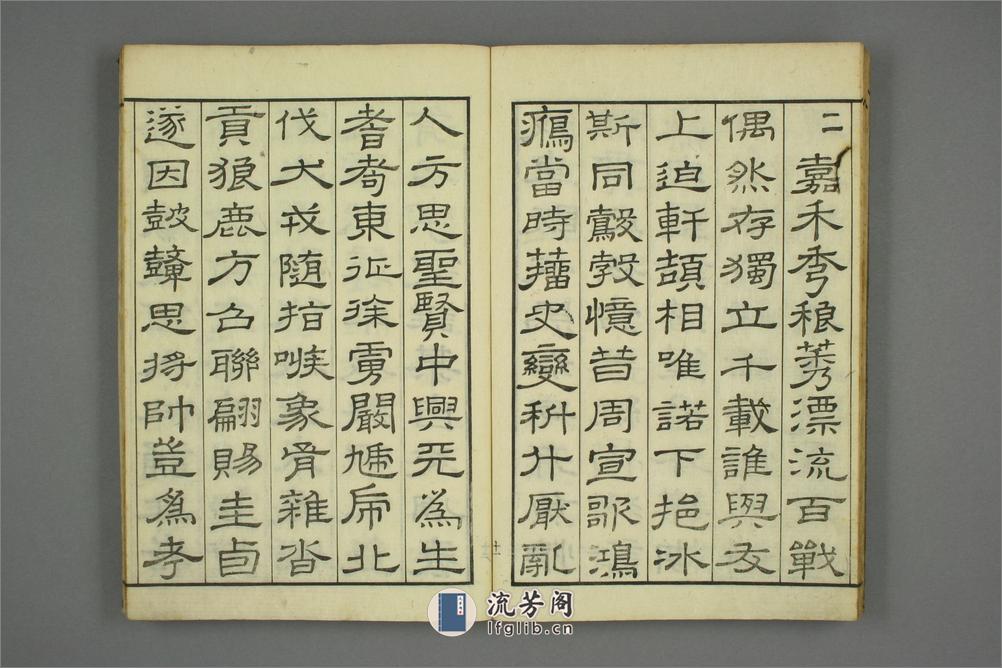 二嘉禾秀稂莠漂流百戰
偶然存獨立千載誰與友
上追軒頡相唯諾下挹冰
斯同鷇㝅憶昔周宣歌鴻
鴈當時籀史變科斗厭亂
人方思聖賢中興天為生
耆耇東征徐虜闞虓虎北
伐犬戎隨指嗾象胥雜沓
貢狼鹿方召聯翩賜圭卣
遂因鼓鼙思將帥豈為考
流芳阁
lfglib.cn